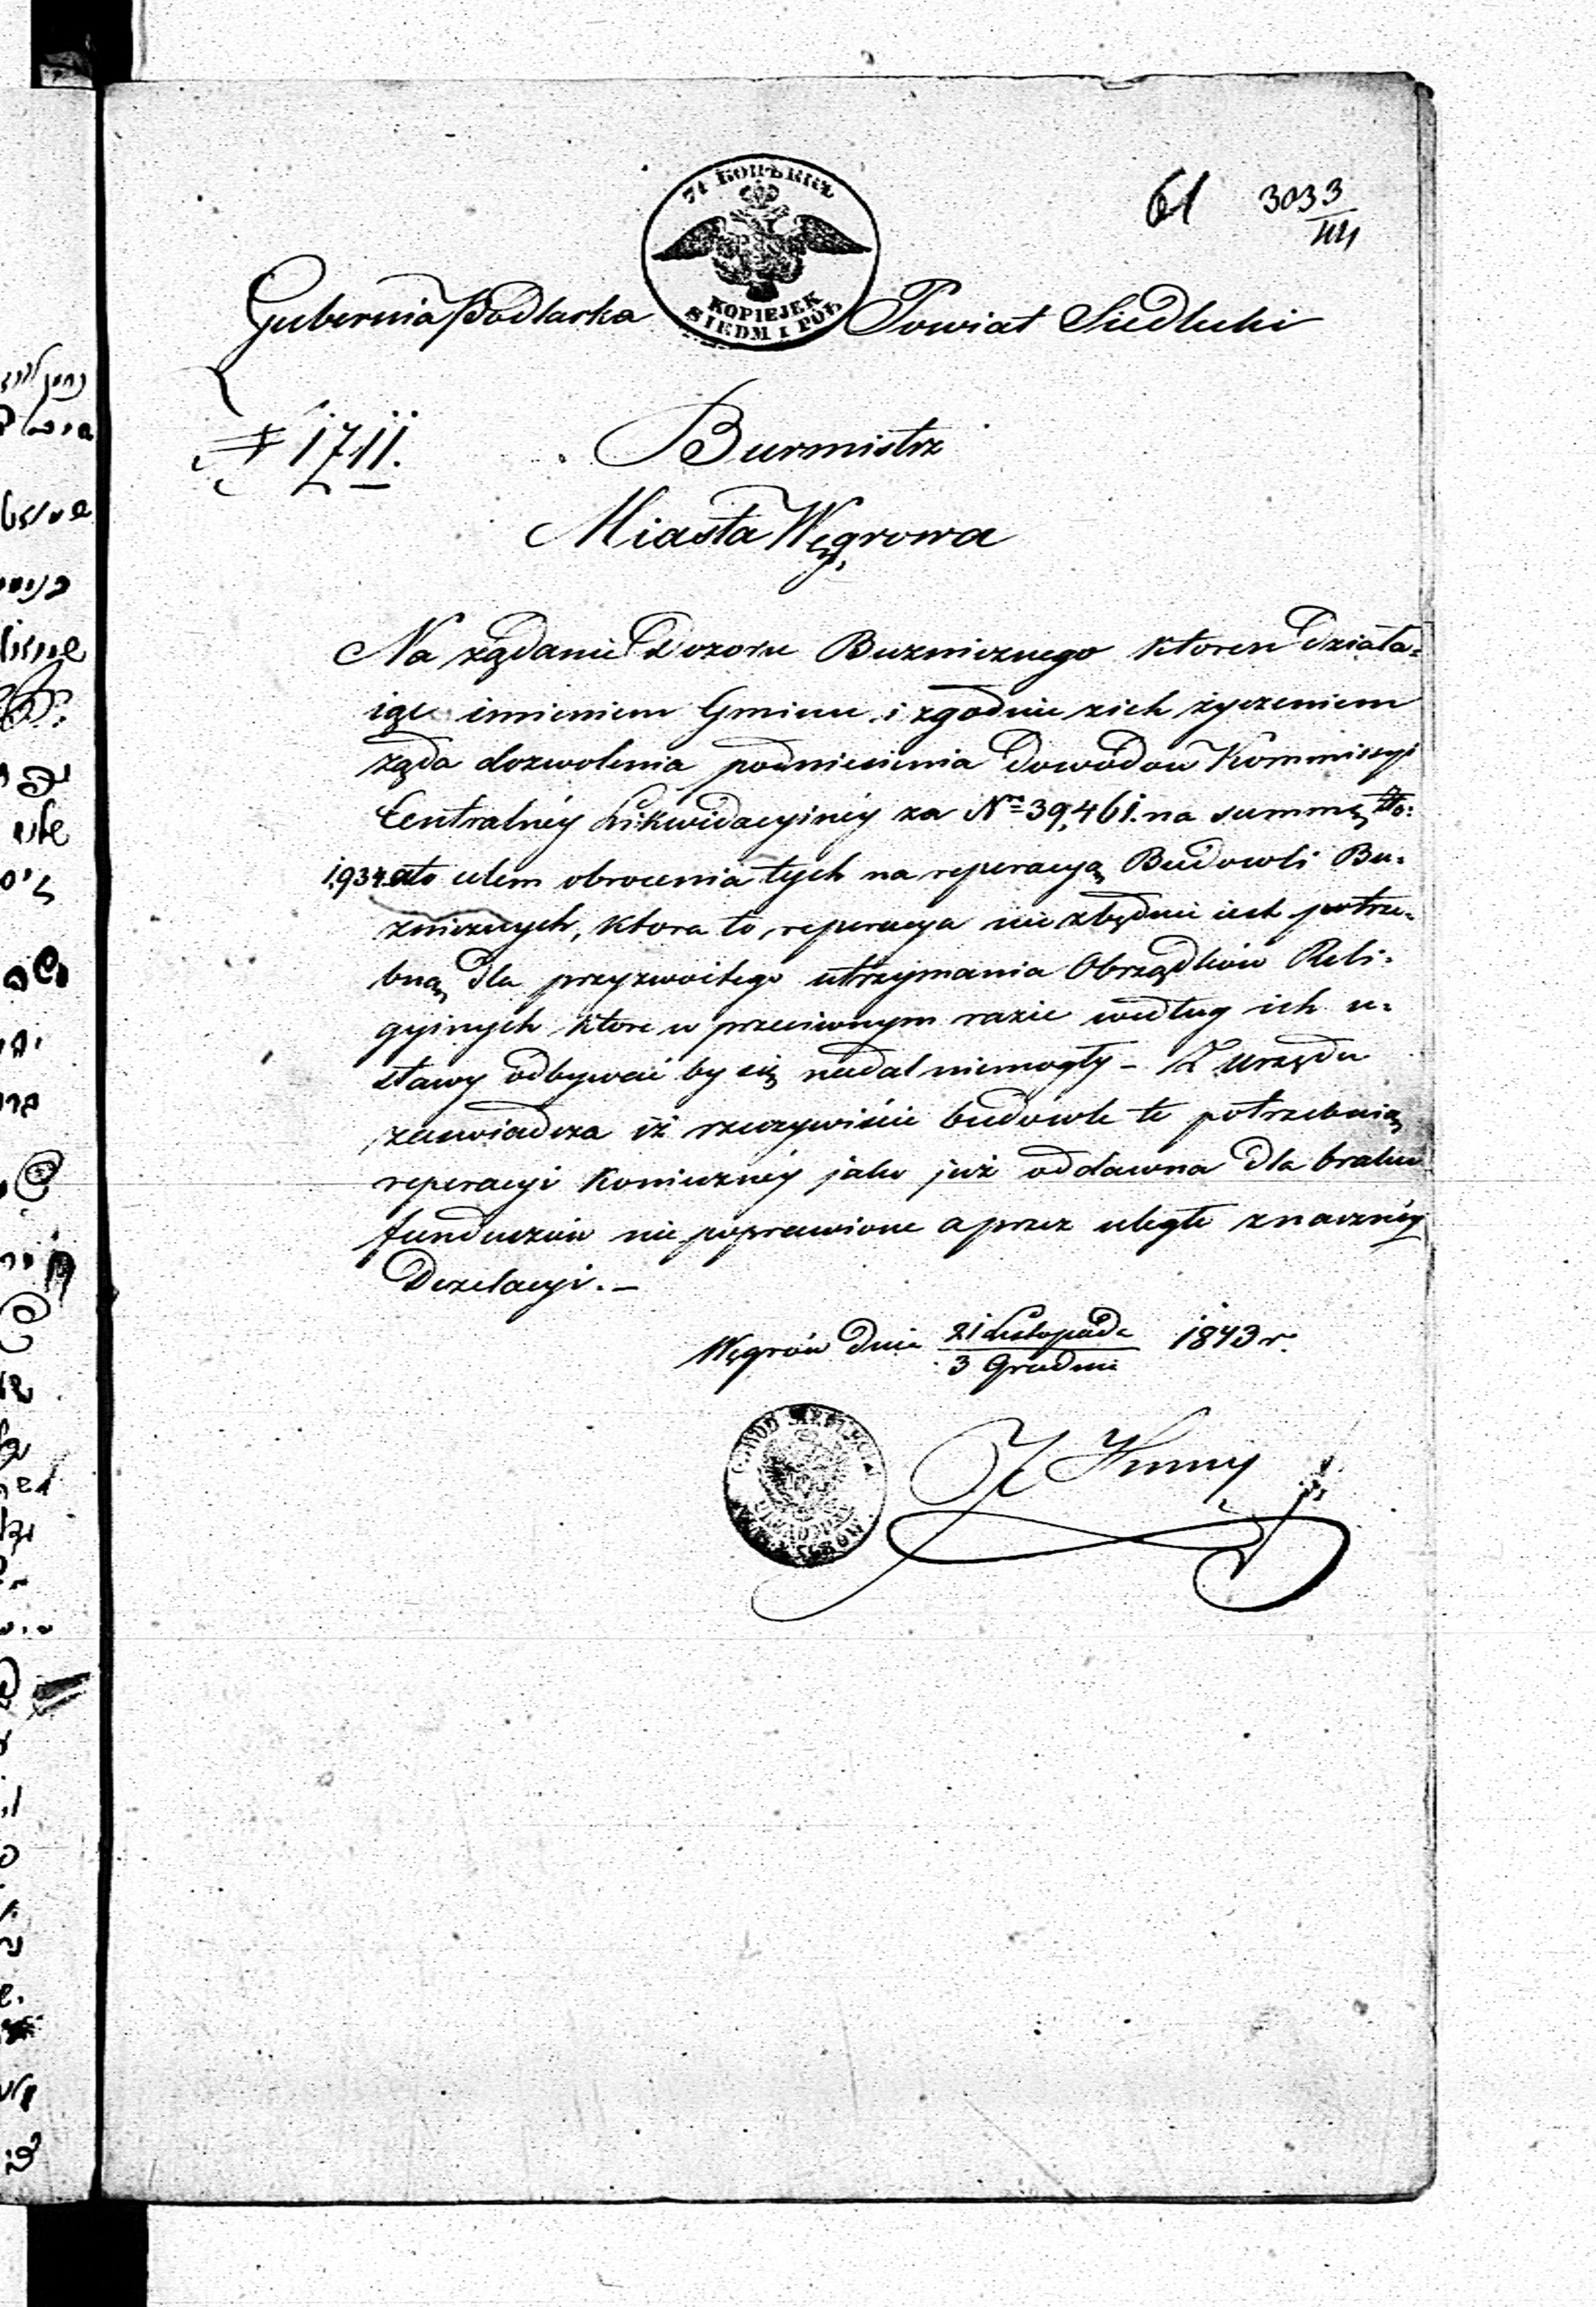 7½ КОПѢЕКЪ
KOPIEJEK
SIEDM I PÓŁ
61 3033
Gubernia Podlaska Powiat Siedlecki
N 1711.
Burmistrz
Miasta Węgrowa
Na żądanie Dozoru Buznicznego ktoren działa=
iąc imieniem Gminu i zgodnie zich życzeniem
żąda dozwolenia podniesienia Dowodow Kommissyi
Centralnéy Likwidacyinéy za Nrm 39,461. na summę Złp:
1,934. a to celem obrocenia tych na reperacyą Budowli Bu=
zniczných, ktora to reperacya niezbędnie iest potrze=
bną dla przyzwoitego utrzymania Obrządków Reli=
gyinych ktore w przeciwnym razie według ich u=
stawy odbywać by się nadal niemogły – Z urzędu
zaswiadcza iż rzeczywiście budowle te potrzebuią
reperacyi konieczney jako już oddawna dla braku
funduszów nie poprawione a przez uległe znacznéy
Dezelacyi. –
Węgrów dnia 21 Listopada 1843 r.
3 Grudnia